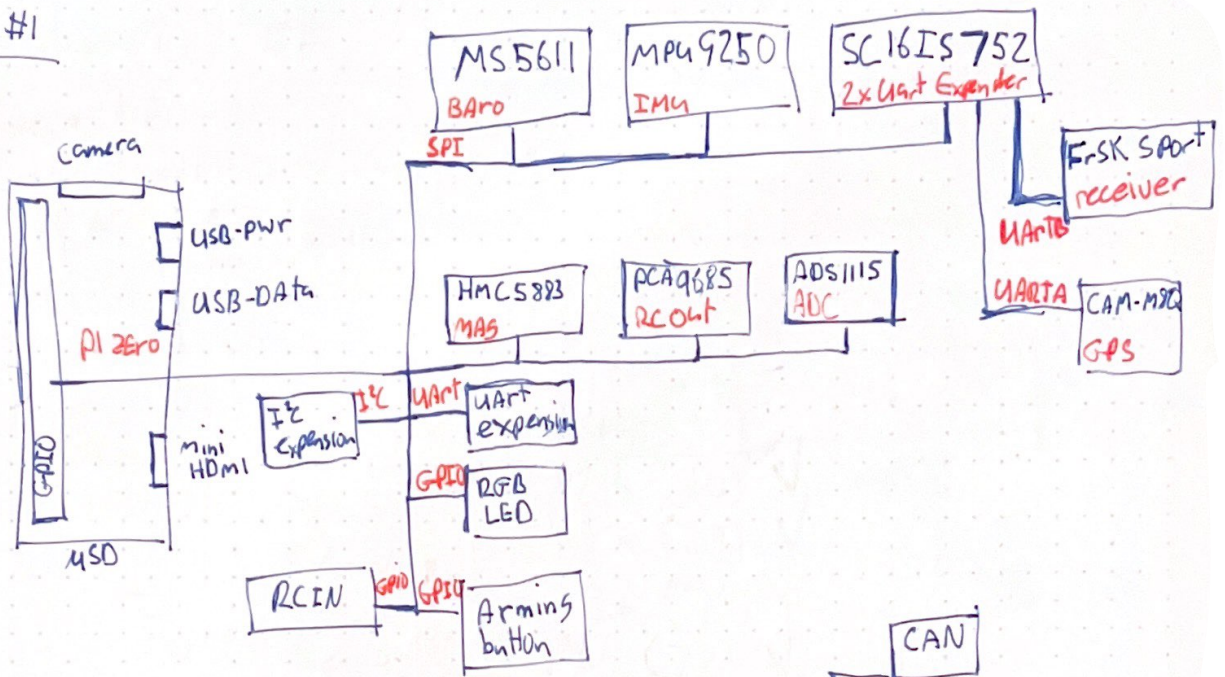 #1
MS5611
BAro
MPU9250
IMU
SC16IS752
2x Uart Expander
SPI
FrSK SPort
receiver
UArTB
camera
USB-PWr
USB-DAta
PI ZErO
GPIO
mini
HDMI
µSD
HMC5883
MAG
PCA9685
RC Out
ADS1115
ADC
UARTA
CAM-M8Q
GPS
I²C
expension
I²C
UArt
UArt
expension
GPIO
RGB
LED
RCIN
GPIO
GPIO
Arming
button
CAN